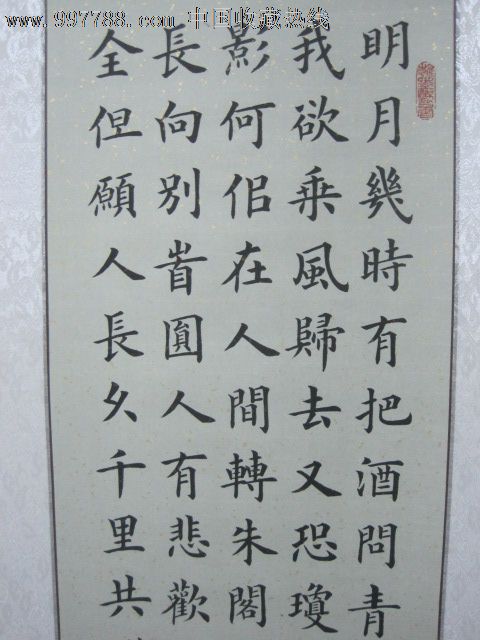 www.997788.com 中国收藏热线
明月幾時有把酒問青
我欲乘風歸去又恐瓊
影何佀在人間轉朱閣
長向別旹圓人有悲歡
全但願人長久千里共